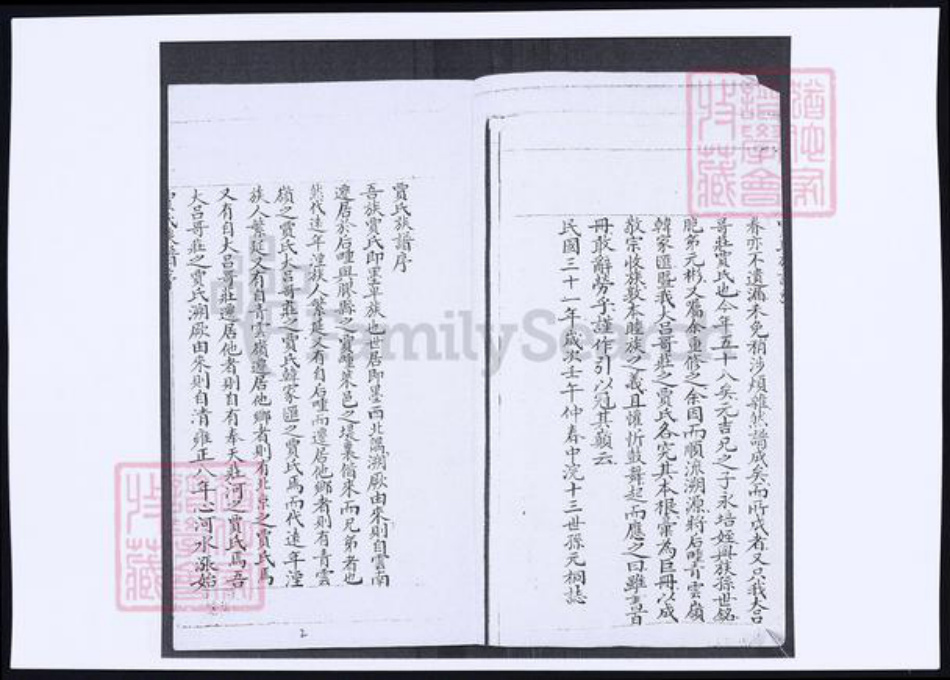 春亦不遺漏未免稍涉煩雜然譜成矣而所成者又只我大呂
哥莊賈氏也今年五十八矣元吉兄之子永培姪與族孫世銘
胞弟元彬又囑余重修之余因而順流溯源將后疃青雲嶺
韓家匯暨我大呂哥莊之賈氏各究其本根彙為巨冊以成
敬宗收族敦本睦族之義且懽忻鼓舞起而應之曰雖
冊敢辭勞乎謹作引以冠其巔云
民國三十一年歲次壬午仲春中浣十三世孫元桐誌
賈氏族譜序
吾族賈氏即墨草族也世居即墨西北隅溯厥由來則自雲南
遷居於后疃與膠縣之賈疃萊邑之埠裏偕來而兄弟者也
代遠年湮族人繁延又有自后疃而遷居他鄉者則有青雲
嶺之賈氏大呂哥莊之賈氏韓家匯之賈氏焉而代遠年湮
族人繁延又有自青雲嶺遷居他鄉者則有北京之賈氏焉
又有自大呂哥莊遷居他者則自有奉天莊河之賈氏焉吾
大呂哥莊之賈氏溯厥由來則自清雍正八年沁河水漲始
2
譜學會
收藏
FamilySearch